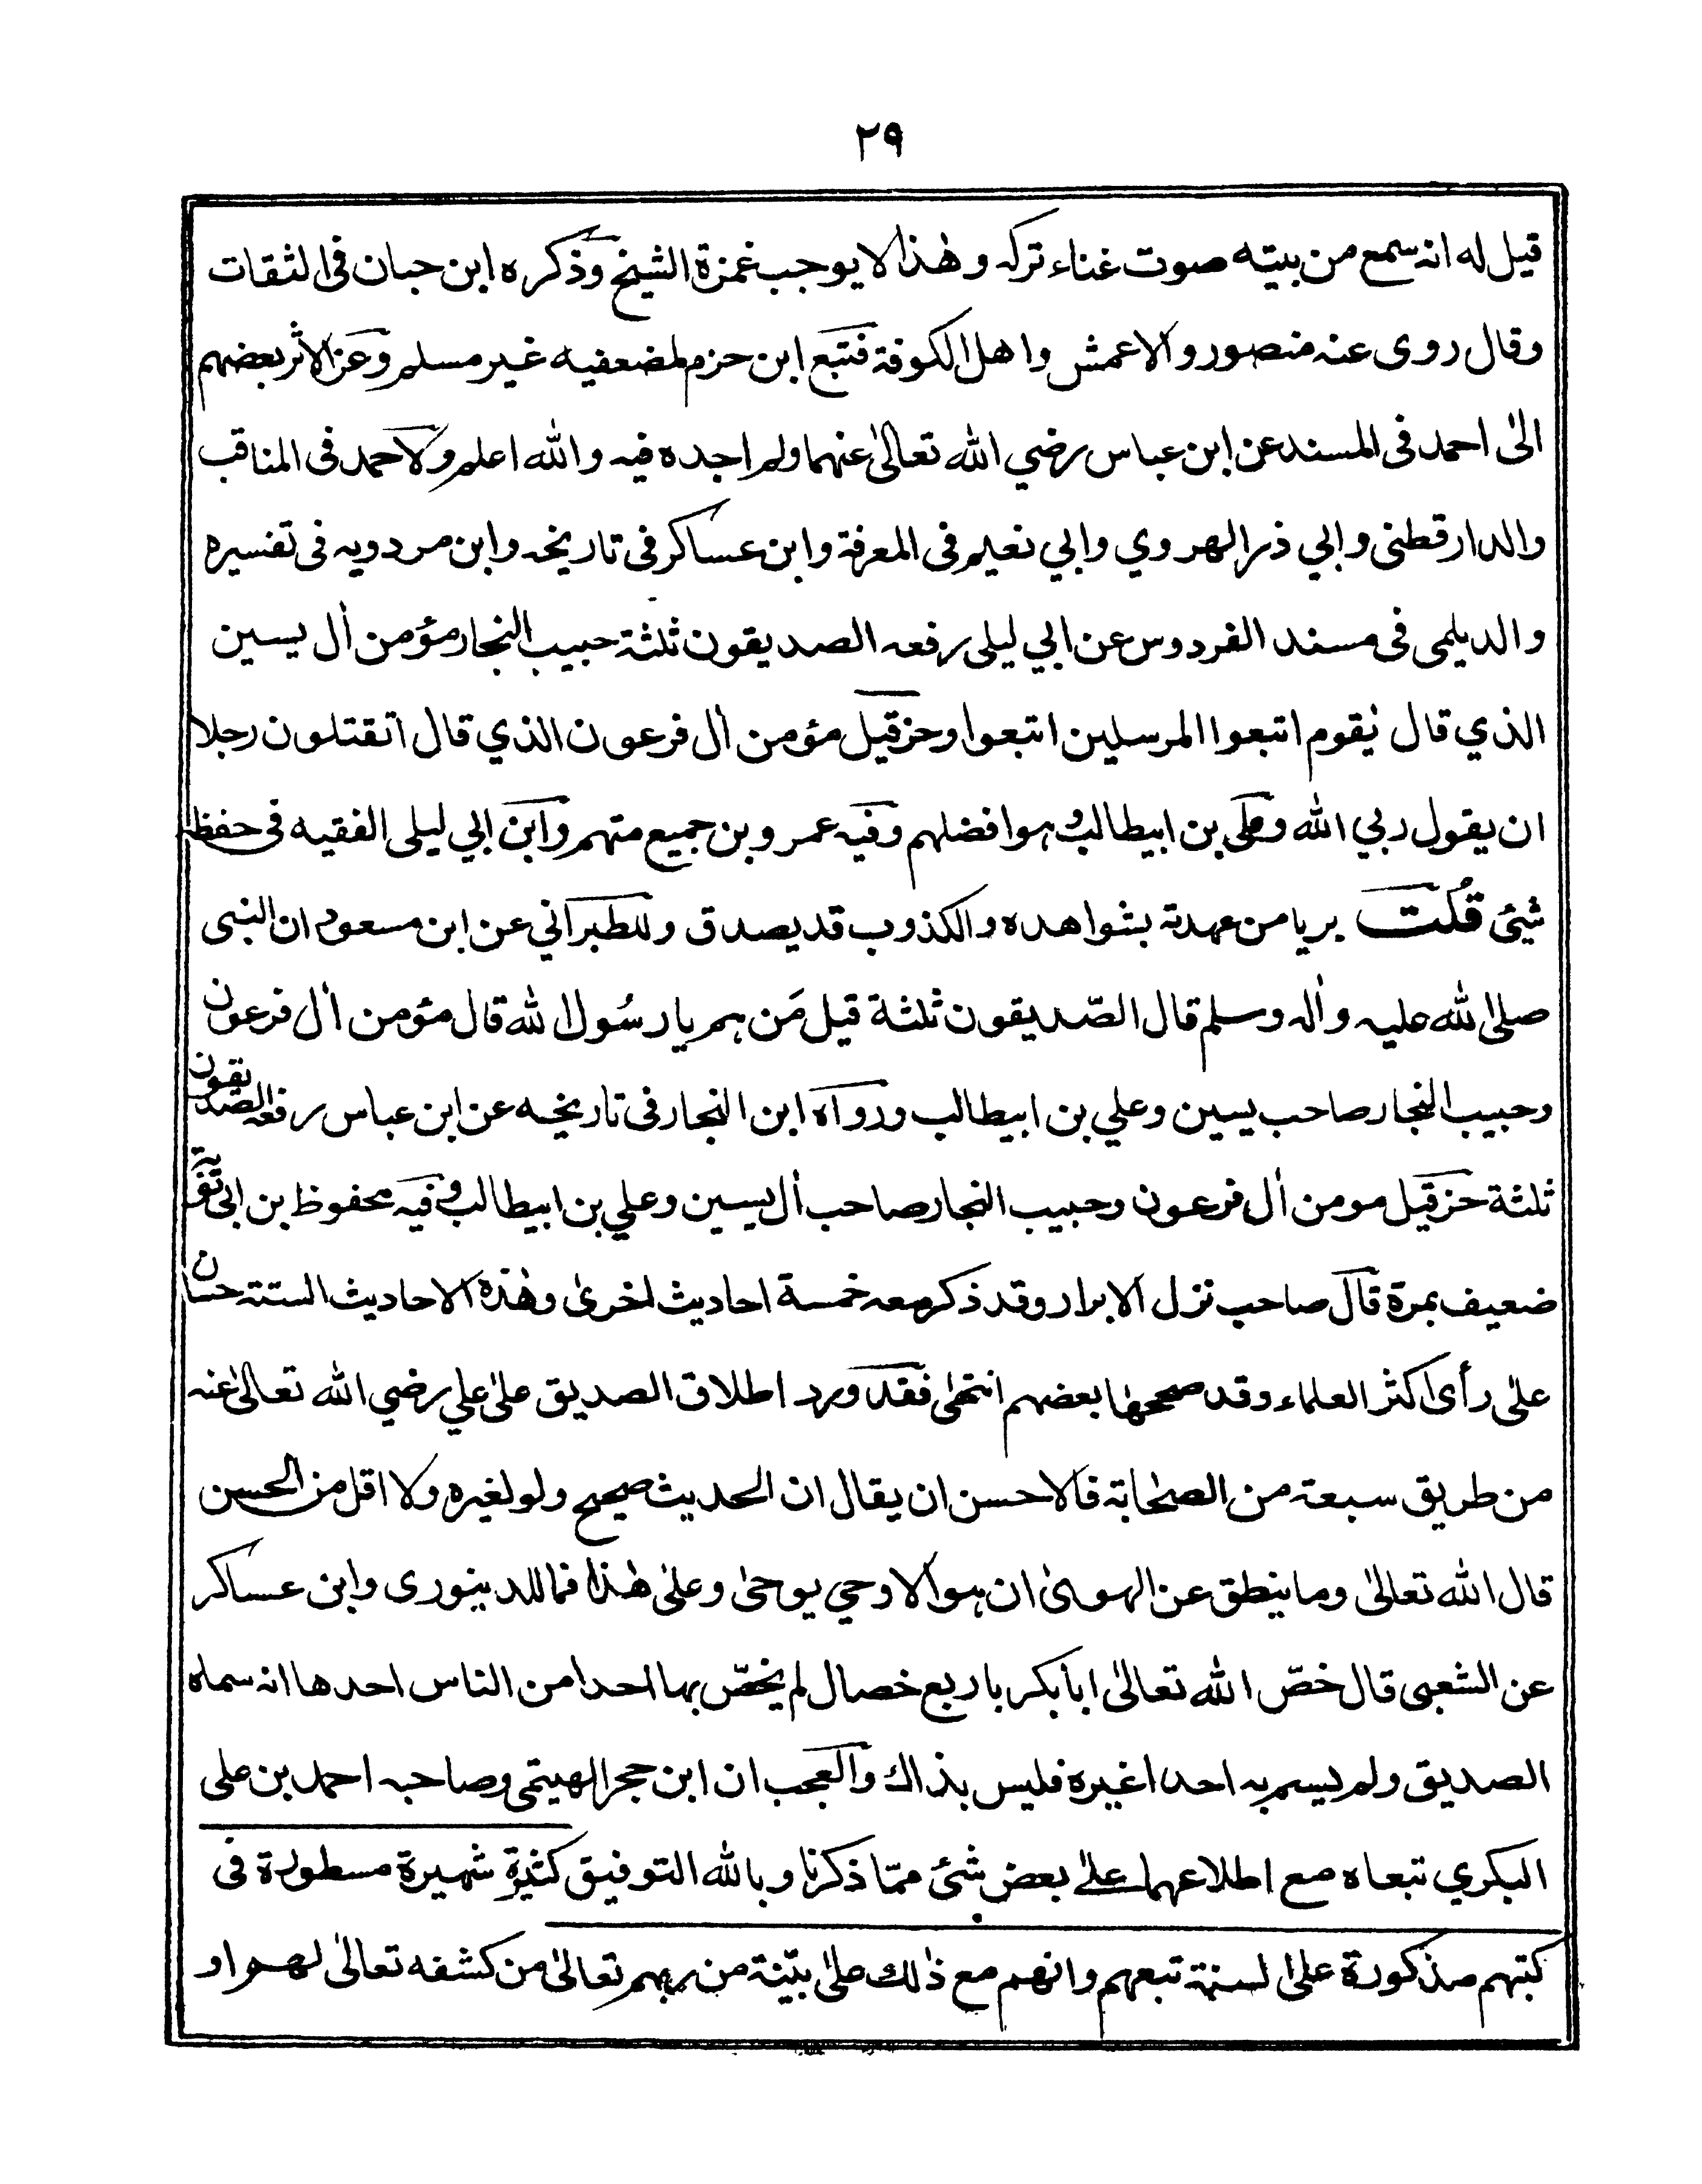 ٢٩
قيل له انه سمع من بيته صوت غناء تركه وهٰذا لا يوجب غمزة الشيخ وذكره ابن حبان فى الثقات
وقال روى عنه منصور والاعمش واهل الكوفة فتبع ابن حزم لمضعفيه غير مسلم وعز الاثر بعضهم
الىٰ احمد فى المسند عن ابن عباس رضي الله تعالىٰ عنهما ولم اجده فيه والله اعلم ولاحمد فى المناقب
والدارقطنى وابي ذر الهروي وابي نعيم فى المعرفة وابن عساكر فى تاريخه وابن مردويه فى تفسيره
والديلمى فى مسند الفردوس عن ابي ليلى رفعه الصديقون ثلثة حبيب النجار مؤمن اٰل يسين
الذي قال يٰقوم اتبعوا المرسلين اتبعوا وحزقيل مؤمن اٰل فرعون الذي قال اتقتلون رجلا
ان يقول ربي الله وعلى بن ابيطالب وهو افضلهم وفيه عمرو بن جميع متهم وابن ابي ليلى الفقيه فى حفظه
شيئ قُلت بريا من عهدته بشواهده والكذوب قد يصدق وللطبراني عن ابن مسعود ان النبى
صلى الله عليه واٰله وسلم قال الصّديقون ثلثة قيل مَن هم يا رسُول الله قال مؤمن اٰل فرعون
وحبيب النجار صاحب يسين وعلي بن ابيطالب ورواه ابن النجار فى تاريخه عن ابن عباس رفعه الصديقون
ثلثة حزقيل مومن اٰل فرعون وحبيب النجار صاحب اٰل يسين وعلي بن ابيطالب وفيه محفوظ بن ابى
ضعيف بمرة قال صاحب نزل الابرار وقد ذكر معه خمسة احاديث اخرىٰ وهٰذه الاحاديث الستة حسان
علىٰ رأى اكثر العلماء وقد صححها بعضهم انتهىٰ فقد ورد اطلاق الصديق علىٰ علي رضي الله تعالىٰ عنه
من طريق سبعة من الصحٰابة فالاحسن ان يقال ان الحديث صحيح ولو لغيره ولا اقل من الحسن
قال الله تعالىٰ وما ينطق عن الهوىٰ ان هو الا وحي يوحىٰ وعلىٰ هٰذا فما للدينورى وابن عساكر
عن الشعبى قال خصّ الله تعالىٰ ابا بكر باربع خصال لم يخصّ بها احدا من الناس احدها انه سماه
الصديق ولم يسم به احدا غيره فليس بذاك والعجب ان ابن حجر الهيتمى وصاحبه احمد بن على
البكري تبعاه مع اطلاعهما علىٰ بعض شئ ممّا ذكرنا وبالله التوفيق كثيرة شهيرة مسطورة فى
كتبهم مذكورة علىٰ السنة تبعهم وانهم مع ذٰلك علىٰ بيّنة من ربهم تعالىٰ من كشفه تعالىٰ لهم او